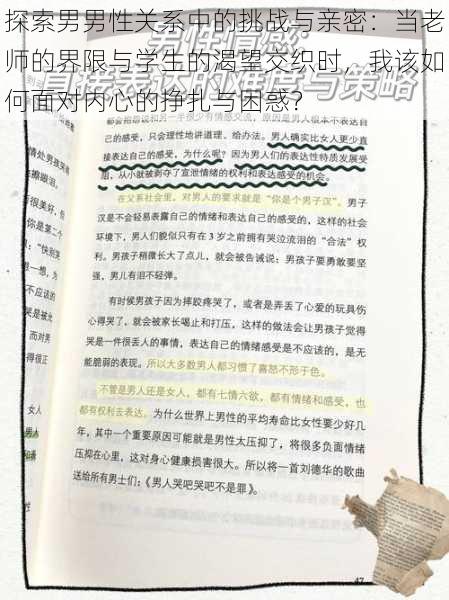 探索男男性关系中的挑战与亲密：当老
师的界限与学生的渴望交织时，我该如
何面对内心的挣扎与困惑？
男性情感：
直接表达的难与策略
己的感受，只会理性地讲道理、给办法。男人确实比女人更少直
接表达自己的感受，为什么呢？因为男人们的表达性特质发展受
阻，从小就被剥夺了宣泄情绪的权利和表达感受的机会。
在父系社会里，对男人的要求就是“你是个男子汉”。男子
汉是不会轻易表露自己的情绪和表达自己的感受的，这样的社会
环境下，男人们貌似只有在 3 岁之前拥有哭泣流泪的“合法”权
利。男孩子稍微长大了点儿，就会被告诫说：男孩子要勇敢要坚
强，男儿有泪不轻弹。
有时候男孩子因为摔跤疼哭了，或者是弄丢了心爱的玩具伤
心得哭了，就会被家长喝止和打压，这样的做法会让男孩子觉得
哭是一件很丢人的事情，表达自己的情绪感受是不应该的，是无
能脆弱的表现。所以大多数男人都习惯了喜怒不形于色。
不管是男人还是女人，都有七情六欲，都有情绪和感受，也
都有权利去表达。为什么世界上男性的平均寿命比女性要少好几
年，其中一个重要原因可能就是男性太压抑了，将很多负面情绪
压抑在心里，这对身心健康损害很大。所以将一首刘德华的歌曲
送给所有男士们：《男人哭吧哭吧不是罪》。
擦眼泪。
你是第二个
：“快别哭
一想，为
不应该的
而对男
得很正
女人
47